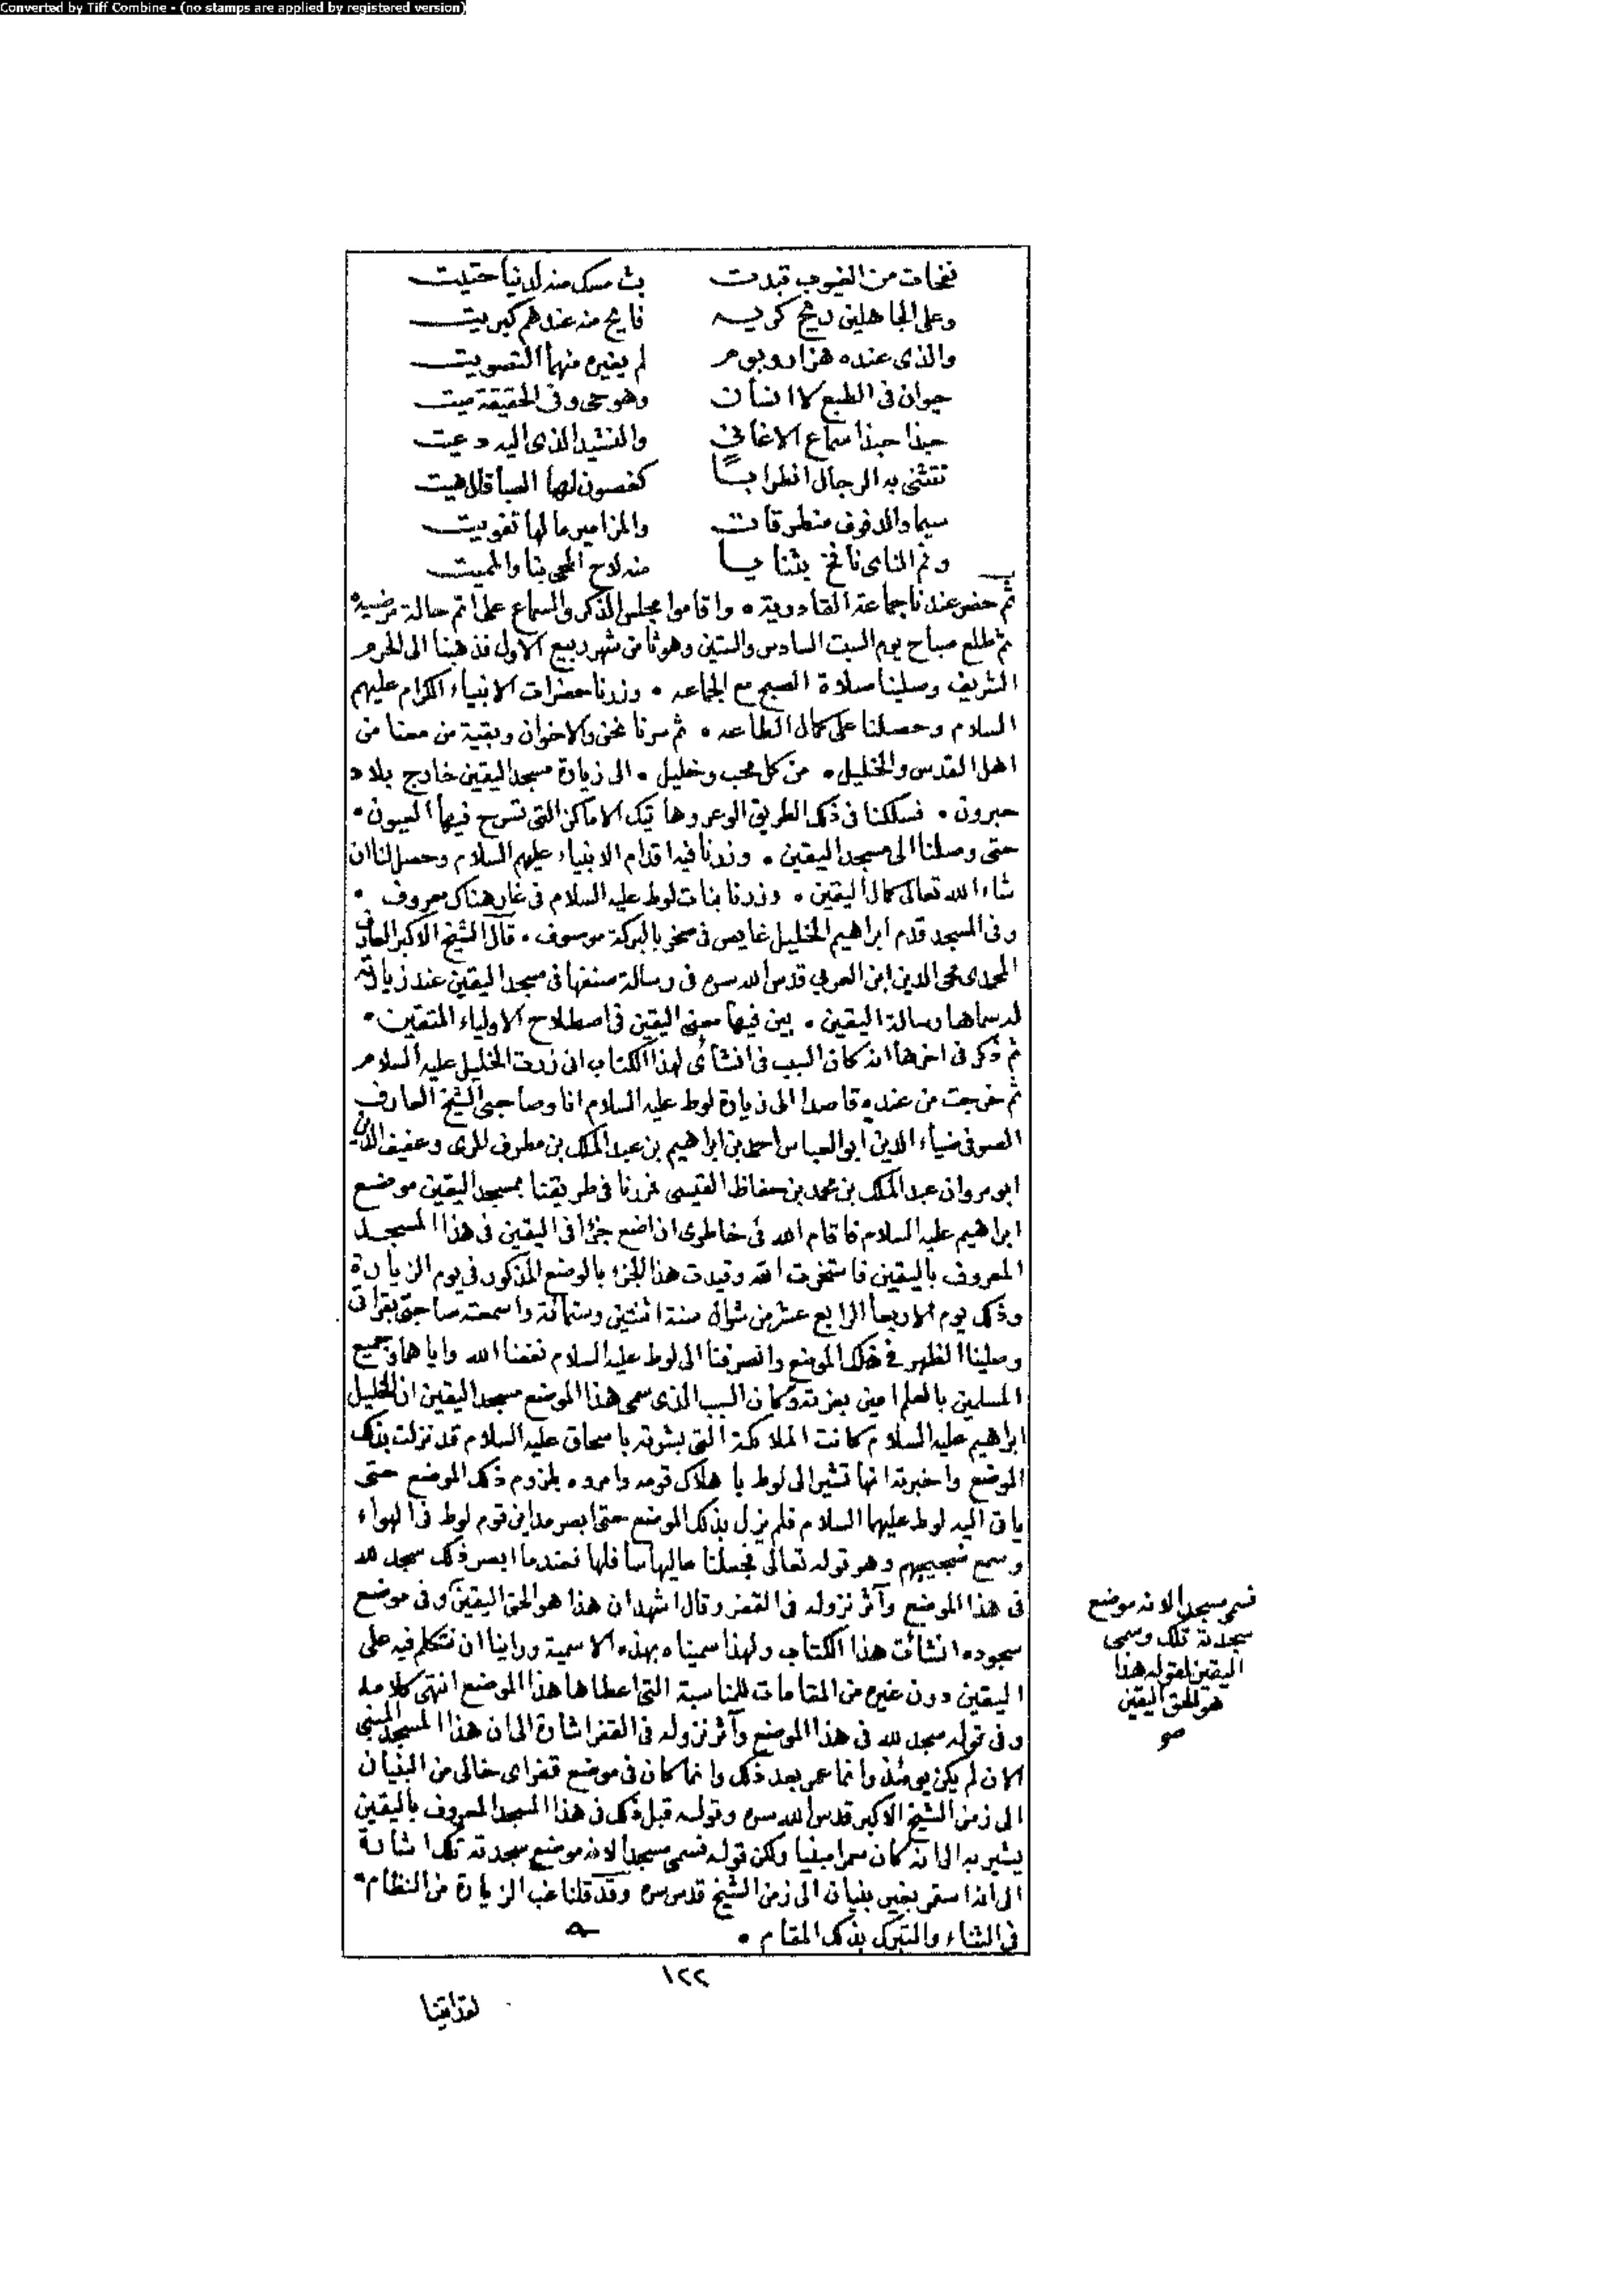 Converted by Tiff Combine - (no stamps are applied by registered version)
نفحات من الغيوب تبدت بث مسك منه لدنيا حتيت
وعلى الجاهلين ريح كريه فايح منه عندهم كبريت
والذى عنده هزار وبوم لم يغيره منهما التصويت
حيوان فى الطبع لا انسان وهو حى وفى الحقيقة ميت
حبذا حبذا سماع الاغانى والنشيد الذى اليه دعيت
تنثنى به الرجال اضطرابا كغصون لها الصبا قال هيت
سيما والدفوف منطرقات والمزامير ما لها تفويت
وفم الناى نافخ بثنايا منه لاح المحى بنا والمميت
ثم حضر عندنا جماعة القادرية ٠ واقاموا مجلس الذكر والسماع على اتم حالة مرضيه
ثم طلع صباح يوم السبت السادس والستين وهو ثامن شهر ربيع الاول فذهبنا الى الحرم
الشريف وصلينا صلاة الصبح مع الجماعه ٠ وزرنا حضرات الانبياء الكرام عليهم
السلام وحصلنا على كمال الطاعه ٠ ثم سرنا نحن والاخوان وبقية من معنا من
اهل القدس والخليل ٠ من كل محب وخليل ٠ الى زيارة مسجد اليقين خارج بلاد
حبرون ٠ فسلكنا فى ذلك الطريق الوعر وهاتيك الاماكن التى تسرح فيها العيون ٠
حتى وصلنا الى مسجد اليقين ٠ وزرنا فيه اقدام الانبياء عليهم السلام وحصل لنا ان
شاء الله تعالى كمال اليقين ٠ وزرنا بنات لوط عليه السلام فى غار هناك معروف ٠
وفى المسجد قدم ابراهيم الخليل غايص فى صخر بالبركة موصوف ٠ قال الشيخ الاكبر العارف
المحمدى محى الدين ابن العربي قدس الله سره فى رسالة صنفها فى مسجد اليقين عند زيارته
له سماها رسالة اليقين ٠ بين فيها معنى اليقين فى اصطلاح الاولياء المتقين ٠
ثم ذكر فى اخرها انه كان السبب فى انشائى لهذا الكتاب انى زرت الخليل عليه السلام
ثم خرجت من عنده قاصدا الى زيارة لوط عليه السلام انا وصاحبى الشيخ العارف
الصوفى ضياء الدين ابو العباس احمد بن ابراهيم بن عبد الملك بن مطرف المرى وعفيف الدين
ابو مروان عبد الملك بن محمد بن حفاظ القيسى فمررنا فى طريقنا بمسجد اليقين موضع
ابراهيم عليه السلام فاقام الله فى خاطرى ان اضع جزأ فى اليقين فى هذا المسجد
المعروف باليقين فاستخرت الله وقيدت هذا الجزء بالوضع المذكور فى يوم الزيارة
وذلك يوم الاربعا الرابع عشر من شوال سنة اثنتين وستمائة واسمعته صاحبى بقراتى
وصلينا الظهر فى ذلك الموضع وانصرفنا الى لوط عليه السلام نفعنا الله واياهما وجميع
المسلمين بالعلم امين بعزته وكان السبب الذى سمى هذا الموضع مسجد اليقين ان الخليل
ابراهيم عليه السلام كانت الملائكة التى بشرته باسحاق عليه السلام قد نزلت بذلك
الموضع واخبرته انها تشير الى لوط باهلاك قومه وامروه بلزوم ذلك الموضع حتى
ياتى اليه لوط عليهما السلام فلم يزل بذلك الموضع حتى ابصر مداين قوم لوط فى الهواء
وسمع ضجيجهم وهو قوله تعالى فجعلنا عاليها سافلها فعندما ابصر ذلك سجد لله
فى هذا الموضع وآثر نزوله فى القفر وقال اشهد ان هذا هو الحق اليقين وفى موضع
سجوده انشأت هذا الكتاب ولهذا سميناه بهذه الاسمية وراينا ان نتكلم فيه على
اليقين دون غيره من المقامات للمناسبة التى اعطاها هذا الموضع انتهى كلامه
وفى قوله سجد لله فى هذا الموضع وآثر نزوله فى القفر اشارة الى ان هذا المسجد المبنى
الان لم يكن يومئذ وانما عمر بعد ذلك وانما كان فى موضع قفر اى خالى من البنيان
الى زمن الشيخ الاكبر قدس الله سره وقوله قبل ذلك فى هذا المسجد المعروف باليقين
يشير به الى انه كان معرا مبنيا ولكن قوله فسمى مسجدا لانه موضع سجدته تلك اشارة
الى انه استمر بغير بنيان الى زمن الشيخ قدس سره وقد قلنا غب الزيارة من النظام ٠
فى الثناء والتبرك بذلك المقام ٠
فسمى مسجدا لانه موضع
سجدته تلك وسمى
اليقين لقوله هذا
هو الحق اليقين
صح
١٢٢
لقد اتينا